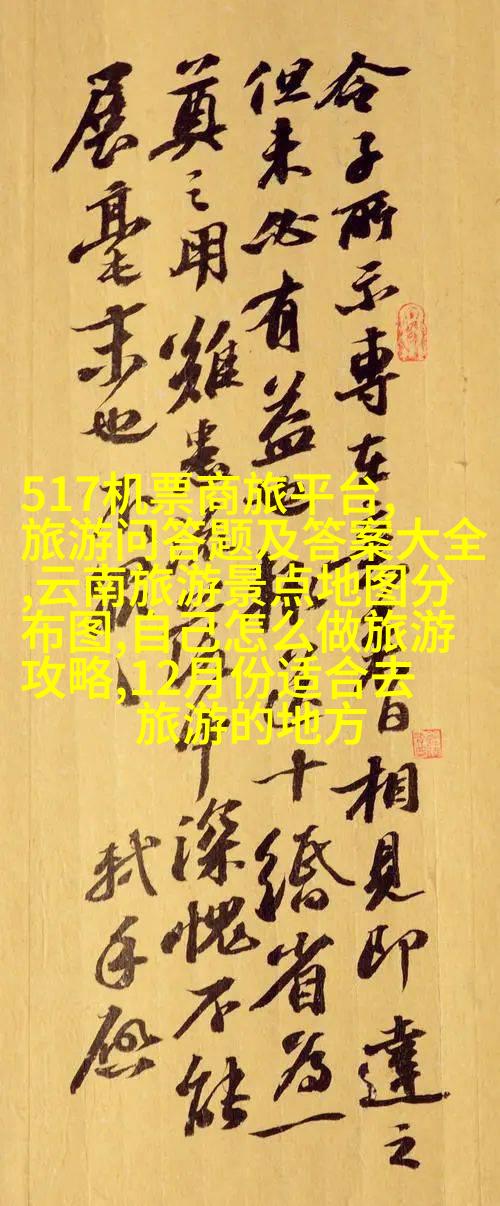 令子所示專在日相見即達之
但未必有益也十緡省為一
奠之用雖甚深愧不能
展毫末也
軾手啟
517机票商旅平台,
旅游问答题及答案大全
,云南旅游景点地图分
布图,自己怎么做旅游
攻略,12月份适合去
旅游的地方